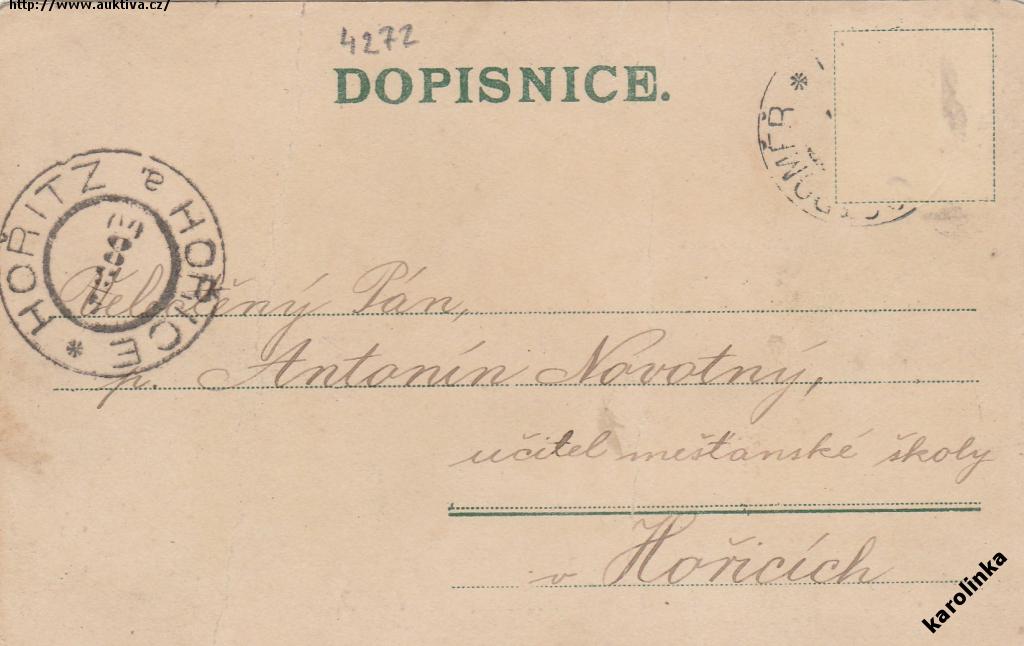 http://www.auktiva.cz/
4272
DOPISNICE.
HOŘITZ a HOŘICE *
Velectěný Pán,
p. Antonín Novotný,
učitel mešťanské školy
v Hořicích
karolinka